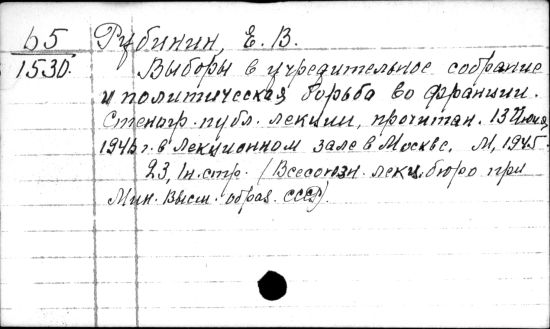 Б5
1530.
Рубинин, Е. В.
Выборы в учредительное собрание
и политическая борьба во Франции.
Стеногр. публ. лекции, прочитан. 13 июня
1946 г. в Лекционном зале в Москве. М, 1945.
23, 1 н. стр. (Всесоюзн. лекц. бюро при
Мин. высш. образ. СССР).